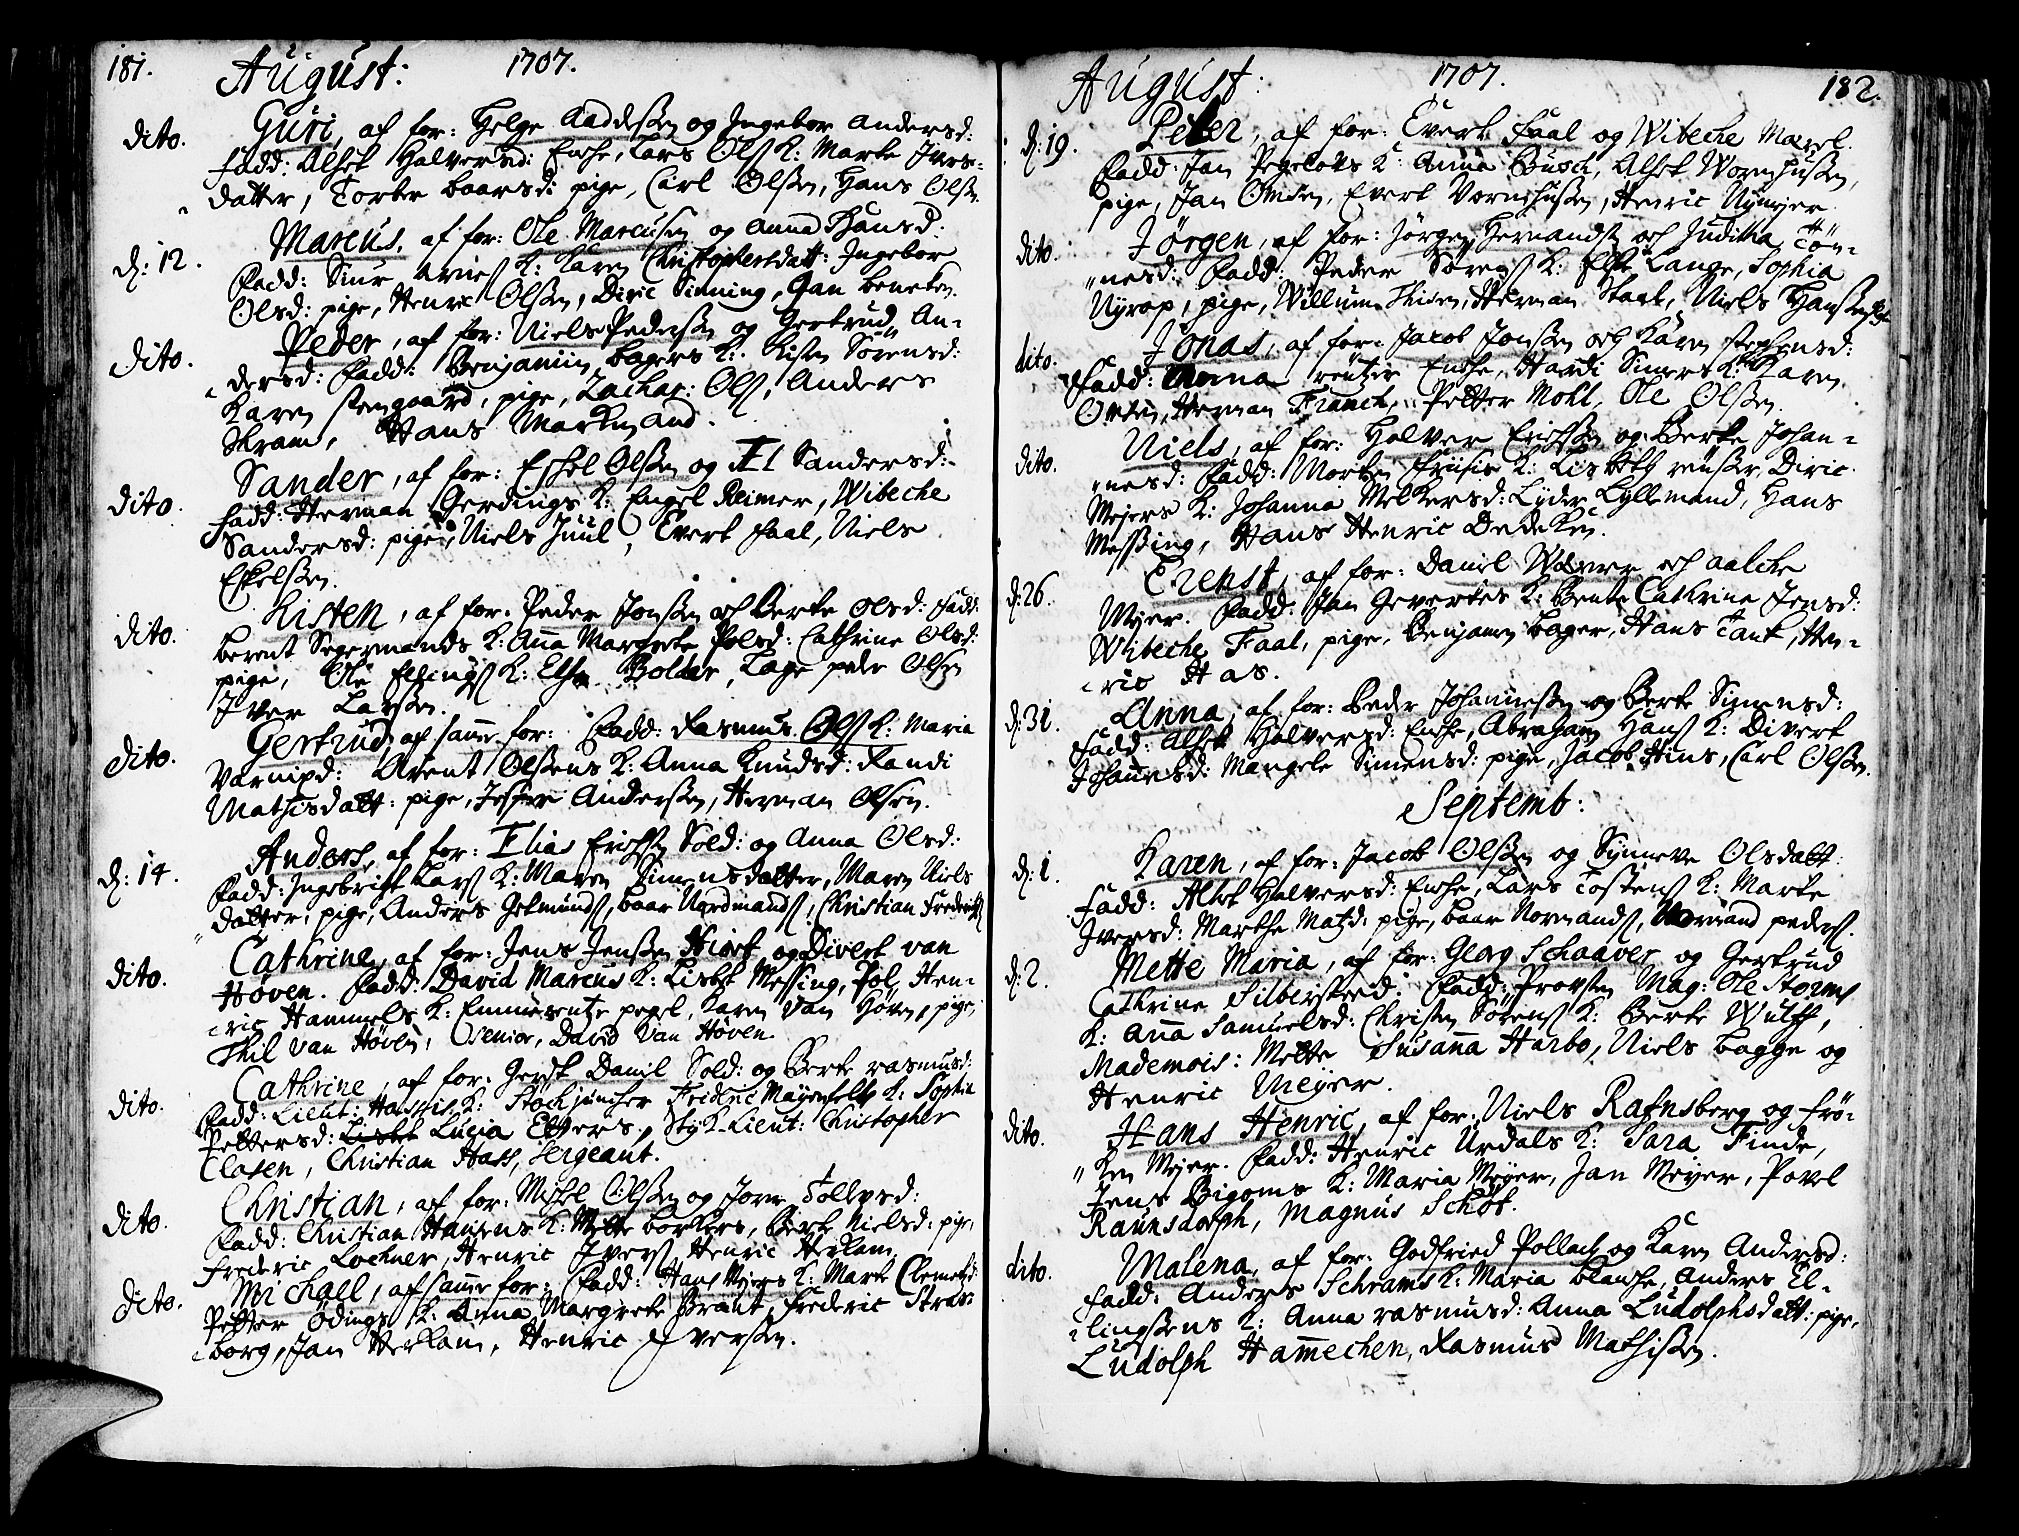 181. August: 1707.
dito. Guri, af for: Helge Aadessen og Ingebor Andersd:
fadd: Alhet Halversd: Enche, Lars Ols K: Marte Ivers-
datter, Torber baarsd: pige, Carl Olssen, Hans Olsen
d: 12. Marcus, af for: Ole Marcussen og Anna Hansd.
Fadd: K: Karen Christophersdatt: Ingebor
Olsd: pige, Henric Olssen, Diric Sinning, Gan beneken.
dito. Peder, af for: Niels Pederssen og Gertrud An-
dersd: Fadd: Benjamin bagers K: Kisten Sørensd:
Karen stengaard, pige, Zachar: Ols, Anders
Skram, Hans Markmand.
dito. Sander, af for: Eskel Olssen og El Sandersd:
fadd: Herman Gerdings K: Engel Reimer, Wibeche
Sandersd: pige, Niels Juul, Evert faal, Niels
Eskelssen.
dito. Kisten, af for: Peder Jonssen och Berte Olsd: fadd:
berent Segermands K: Anna Margrete Polsd: Cathrine Olsd:
pige, Ole Ellings K: Else Bolder, Lage peder Olsen
Iver Larssen.
dito. Gertrud, af samme for: Fadd: Rasmus Ols K: Maria
Arent Olssens K: Anna Knudsd: Randi
Mathisdatt: pige, Jesper Anderssen, Herman Olsen.
d: 14. Anders, af for: Elias Erichssen Sold: og Anna Olsd:
Fadd: Ingebricht Lars K: Maren Simensdatter, Maren Niels
datter, pige, Anders Gelmunds, baar Nordmands, Christian Frederichs
dito. Cathrine, af for: Jens Jenssen Hiort og Divert van
Høven. Fadd: David Marcus K: Lisbet Messing, Pol Hen-
ric Hammels K: Emmerentze pegel, Karen van Høven, pige,
Thil van Høven, Senior, David van Høven.
dito. Cathrine, af for: Gerdt Daniel Sold: og Berte rasmusd:
Fadd: Lieut: K: Stockjuncher Frederic K: Sophia
Pettersd: Lucia Etters, Styk-Lieut: Christopher
Clasen, Christian Hass, Sergeant.
dito. Christian, af for: Michel Olssen og Tollevsd:
Fadd: Christian Hansens K: Mette borkers, Berte Nielsd: pige,
Frederic Lochner, Henric Ivers, Henric Herlam.
dito. Michall, af samme for: Fadd: Hans Mejers K: Marte Clemetsd:
Petter Ødings K: Anna Margrete Brant, Frederic Stras-
borg, Jan Herlam, Henric Iverssen.
August: 1707. 182.
d: 19. Peter, af for: Evert Faal og Wibeche
Fadd: Jan K: Anna Busch, Alhet Wornhussen,
pige, Jan Omsen, Evert Vornhussen, Henric Nymejer.
dito. Jørgen, af for: Jørgen Hernands och Juditha Tøn-
nesd: Fadd: Peder Sørens K: Else Lange, Sophia
Nyrop, pige, Willum Thisen, Herman Staal, Niels Hanssen
dito. Jonas, af for: Jacob Jonssen och Karen stephensd:
Fadd: Anna Enche, Hardi K: Karen
Omsen, Herman Franck, Petter Mohl, Ole Olssen.
dito. Niels, af for: Halver Erichssen og Berte Johan-
nesd: Fadd: Morten friisis K: Lisbeth Diric
Mejers K: Johanna Melkersd: Lyder Lyllemand, Hans
Messing, Hans Henric Dedeken.
d: 26. Erenst, af for: Daniel och aalche
Mejer. Fadd: Jan Gevertes K: Bente Cathrine Jensd:
Wibeche Faal, pige, Benjamin bager, Hans Tank, Hen-
ric Has.
d: 31. Anna, af for: Peder Johannessen og Berte Simensd:
fadd: Alhet Halversd: Enche, Abraham Hans K: Divert
Johannesd: Mangele Simensd: pige, Jacob Hins, Carl Olssen.
Septemb:
d: 1. Karen, af for: Jacob Olssen og Synneve Olsdatt:
fadd: Alhet Halversd: Enche, Lars Tostens K: Marte
Iversd: Marthe Matzd: pige, baar Normands, Normand peders.
d: 2. Mette Maria, af for: Georg Schaaver og Gertrud
Cathrine Silbersteed. Fadd: Provsten Mag: Ole Storms
K: Anna Samuelsd: Christen Sørens K: Berte Wulff,
Mademois: Mette Susanna Harbo, Niels bagge og
Henric Meyer.
dito. Hans Henric, af for: Niels Rafnsberg og frø-
ken Mejer. Fadd: Henric Urdals K: Sara Finde,
Jens Bigoms K: Maria Meyer, Jan Meyer, Povel
Raunsdorph, Magnus Schøt.
dito. Malena, af for: Godfried Pollach og Karen Andersd:
Fadd: Anders Schrams K: Maria blanche, Anders El-
lingssens K: Anna rasmusd: Anna Ludolphsdatt: pige,
Ludolph Hammechen, Rasmus Mathissen.